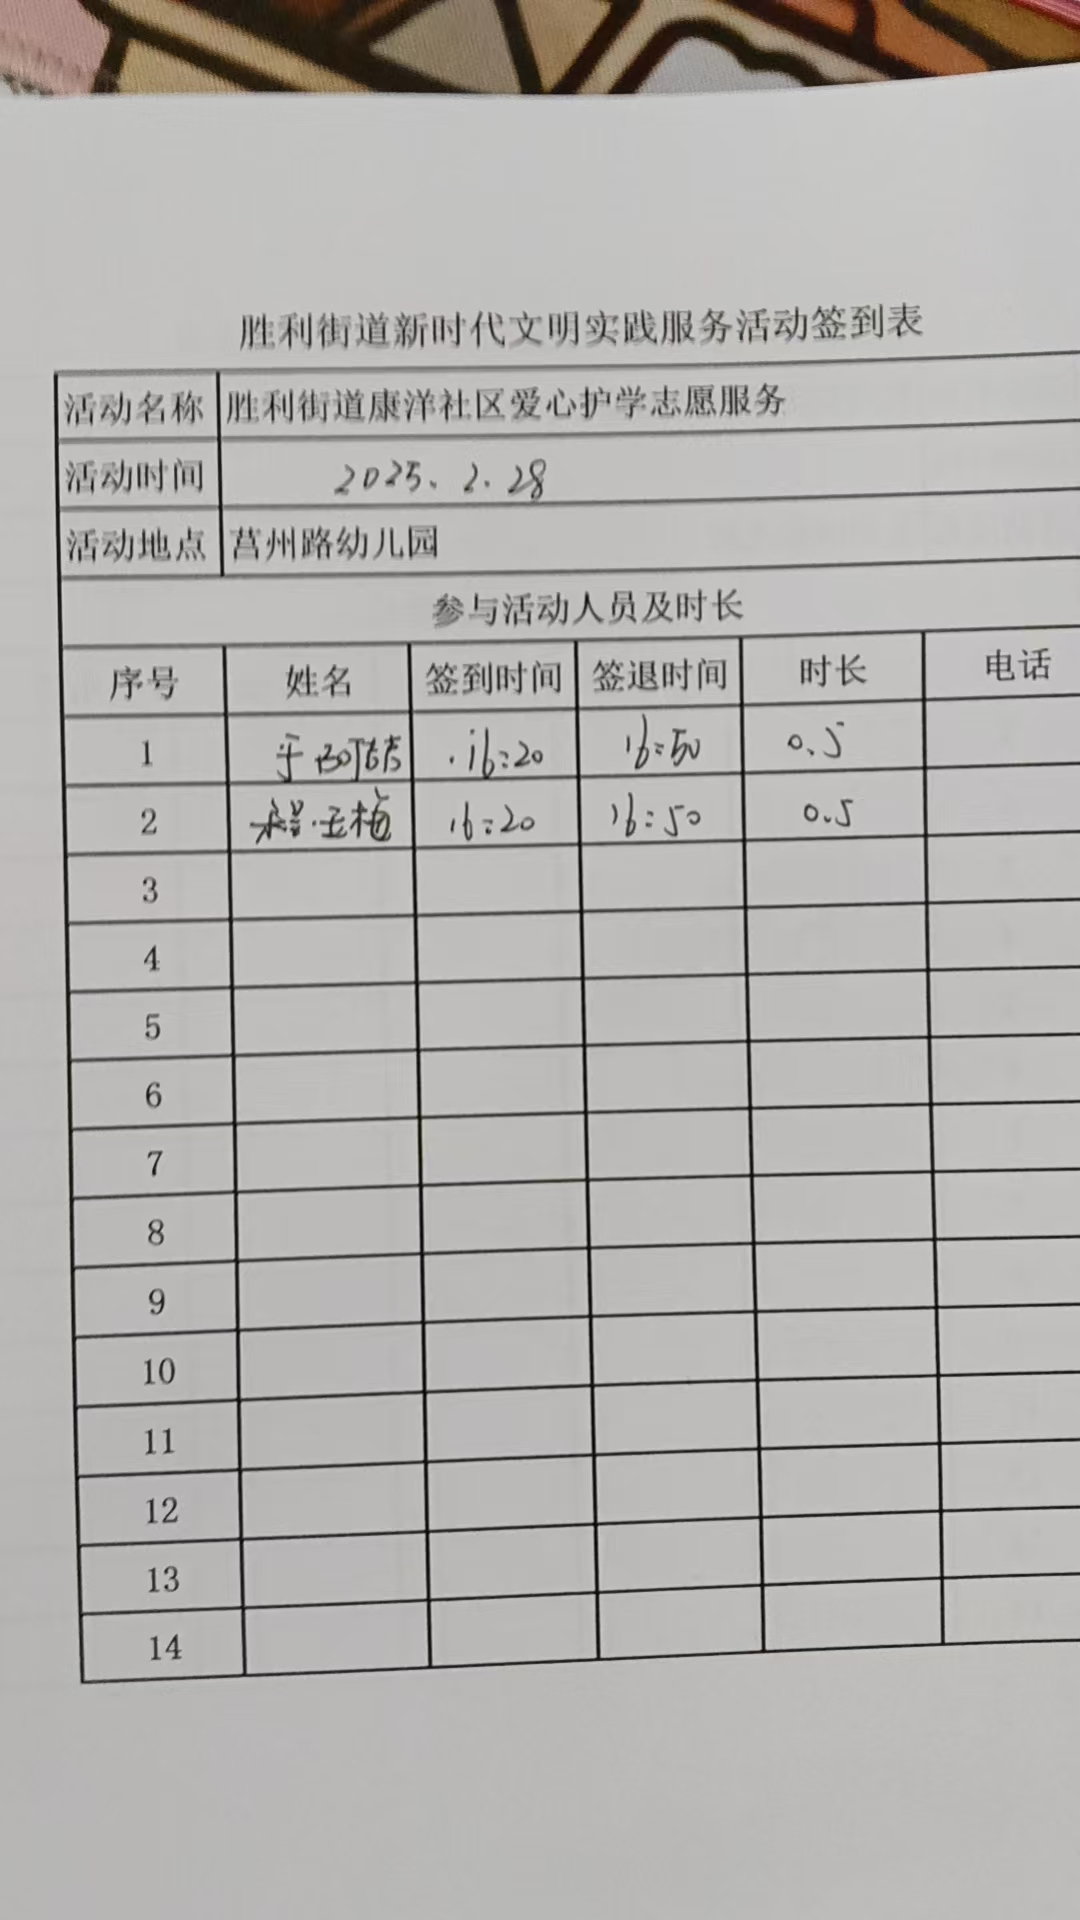 胜利街道新时代文明实践服务活动签到表
活动名称 胜利街道康洋社区爱心护学志愿服务
活动时间 2025.2.28
活动地点 莒州路幼儿园
参与活动人员及时长
序号 姓名 签到时间 签退时间 时长 电话
1 16:20 16:50 0.5
2 程玉梅 16:20 16:50 0.5
3
4
5
6
7
8
9
10
11
12
13
14